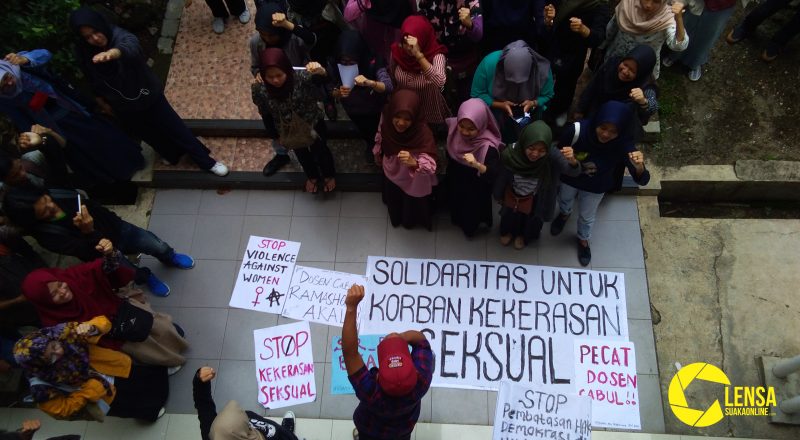 STOP
VIOLENCE
AGAINST
WOMEN
DOSEN
AKAL
SOLIDARITAS UNTUK
KORBAN KEKERASAN
SEKSUAL
STOP
KEKERASAN
SEKSUAL
PECAT
DOSEN
CABUL!!
STOP
Pembatasan HAK
DEMOKRASI
LENSA
SUAKAONLINE.COM